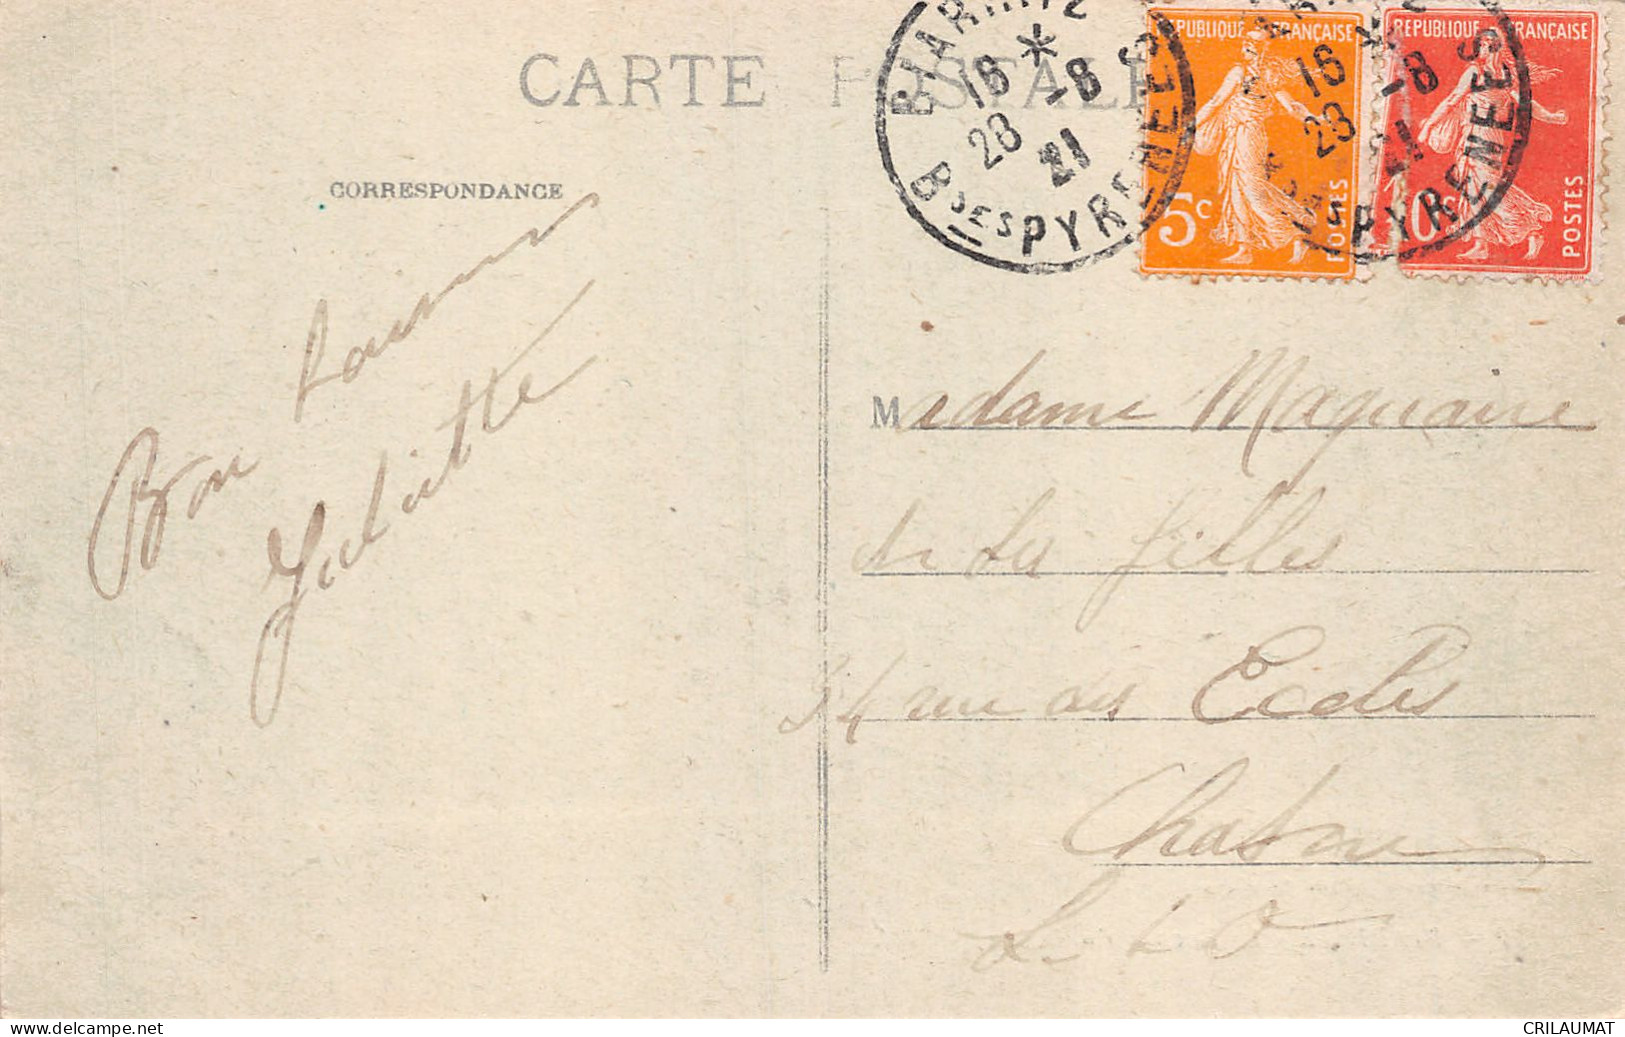 CARTE POSTALE
CORRESPONDANCE
BIARRITZ
16 * -8
28 21
BSES PYRENEES
REPUBLIQUE FRANÇAISE
5c
POSTES
16 -8
28 21
PYRENEES
REPUBLIQUE FRANÇAISE
10c
POSTES
Bon
Juliette
Madame Maguaire
et les filles
34 rue des Ecoles
Chatou
S. et O.
www.delcampe.net
CRILAUMAT